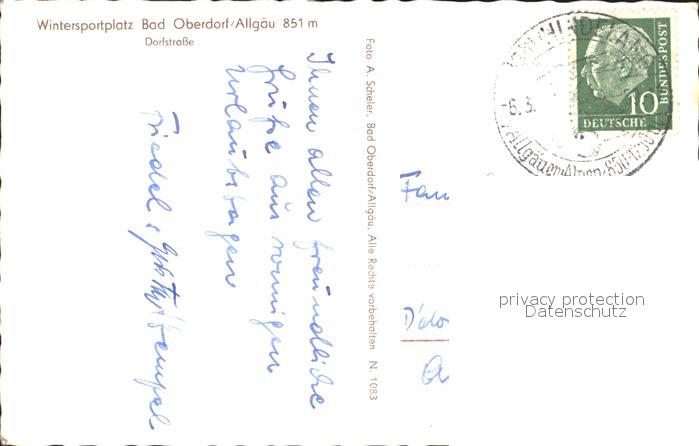 Wintersportplatz Bad Oberdorf/Allgäu 851 m
Dorfstraße
Ihnen allen freundliche
Grüße aus sonnigen
Urlaubstagen
Foto A. Scheler, Bad Oberdorf/Allgäu, Alle Rechte vorbehalten N. 1083
HINDELANG
-6.3.
Allgäuer Alpen 850-1150
10
BUNDESPOST
DEUTSCHE
Fam
privacy protection
Datenschutz